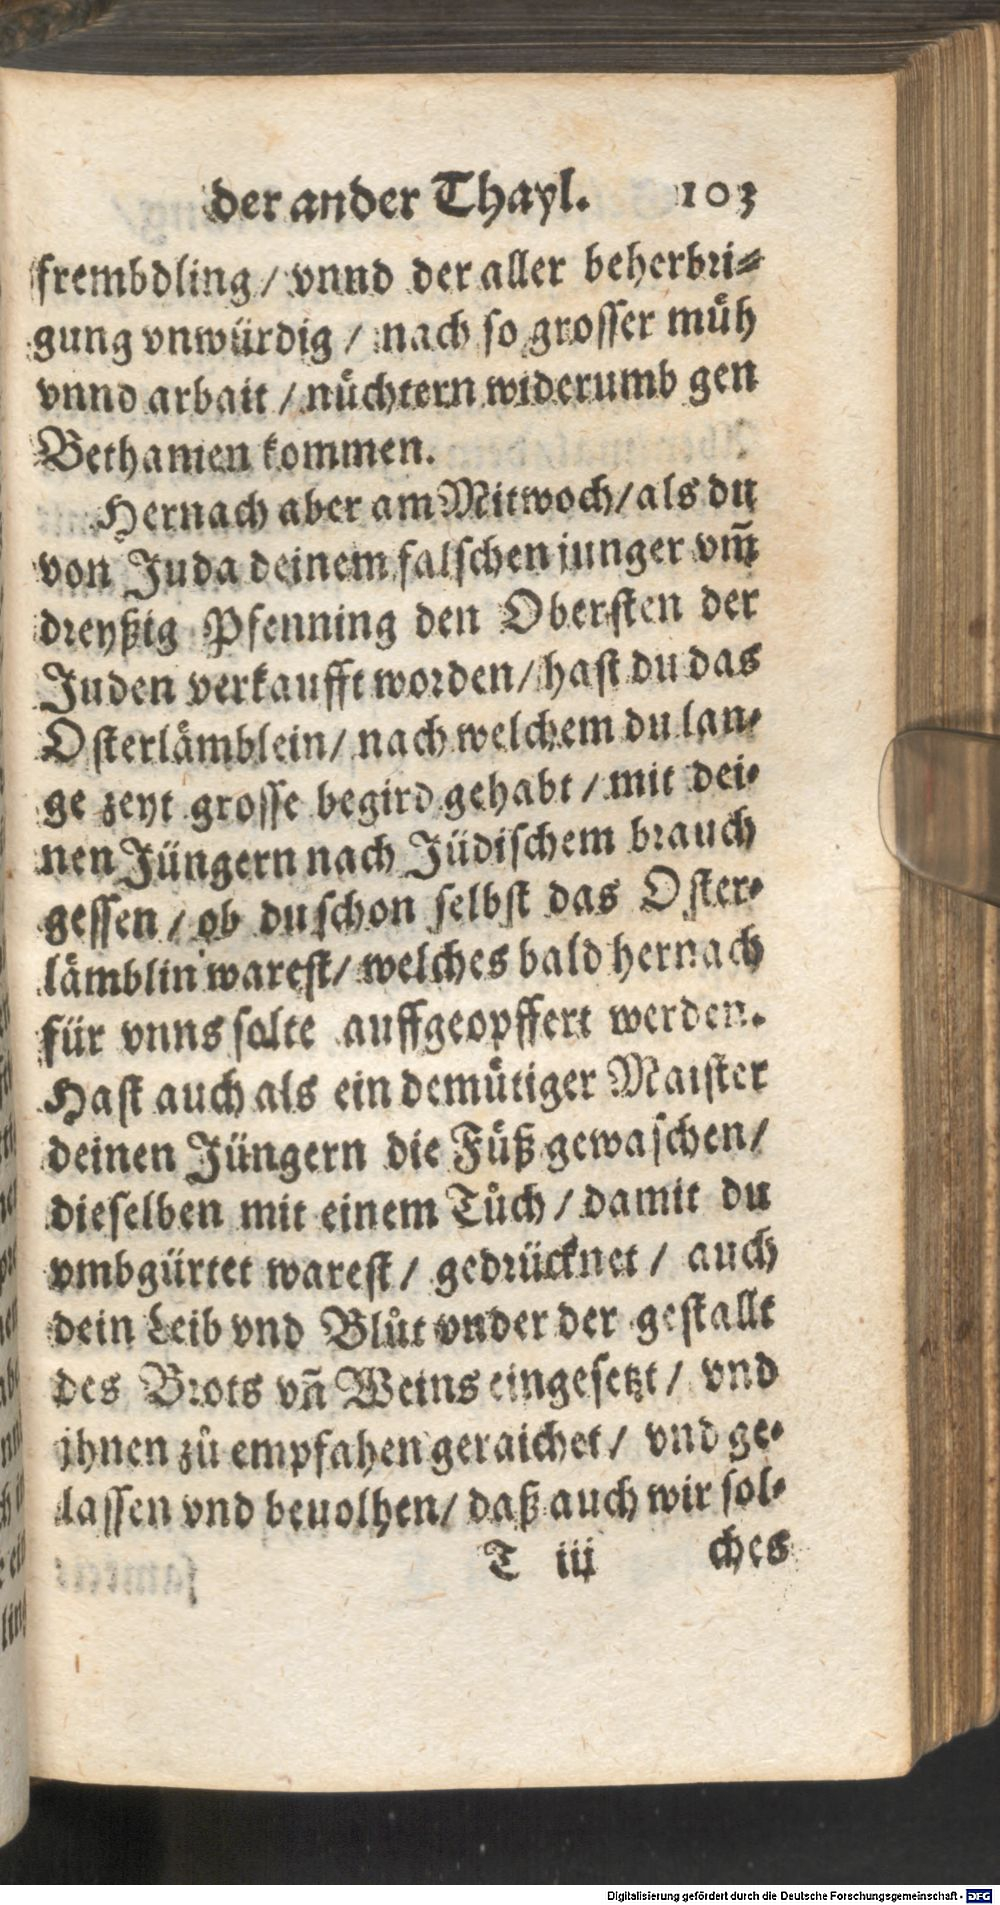 der ander Thayl. 103
frembdling / vnnd der aller beherbri⸗
gung vnwürdig / nach so grosser müh
vnnd arbait / nüchtern widerumb gen
Bethanien kommen.
Hernach aber am Mitwoch / als du
von Juda deinem falschen junger vm̃
dreyßig Pfenning den Obersten der
Juden verkaufft worden / hast du das
Osterlämblein / nach welchem du lan⸗
ge zeyt grosse begird gehabt / mit dei⸗
nen Jüngern nach Jüdischem brauch
gessen / ob du schon selbst das Oster⸗
lämblin warest / welches bald hernach
für vnns solte auffgeopffert werden.
Hast auch als ein demütiger Maister
deinen Jüngern die Füß gewaschen /
dieselben mit einem Tůch / damit du
vmbgürtet warest / gedrücknet / auch
dein Leib vnd Blůt vnder der gestallt
des Brots vñ Weins eingesetzt / vnd
jhnen zů empfahen geraichet / vnd ge⸗
lassen vnd beuolhen / daß auch wir sol⸗
T iij ches
Digitalisierung gefördert durch die Deutsche Forschungsgemeinschaft - DFG